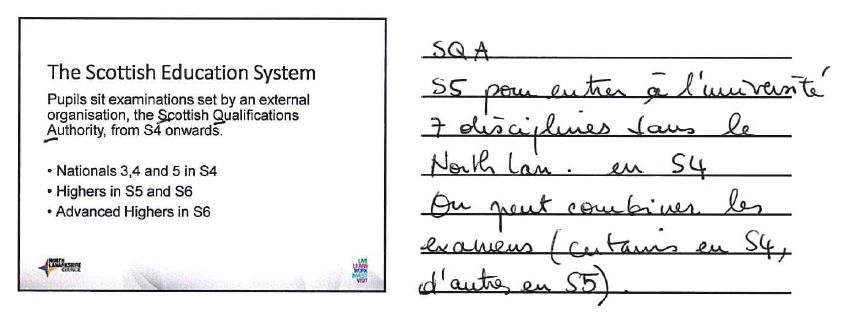 The Scottish Education System
Pupils sit examinations set by an external
organisation, the Scottish Qualifications
Authority, from S4 onwards.
• Nationals 3,4 and 5 in S4
• Highers in S5 and S6
• Advanced Highers in S6
NORTH
LANARKSHIRE
COUNCIL
LIVE
LEARN
WORK
INVEST
VISIT
SQA
S5 pour entrer à l'université
7 disciplines dans le
North Lan. en S4
On peut combiner les
examens (certains en S4,
d'autres en S5).